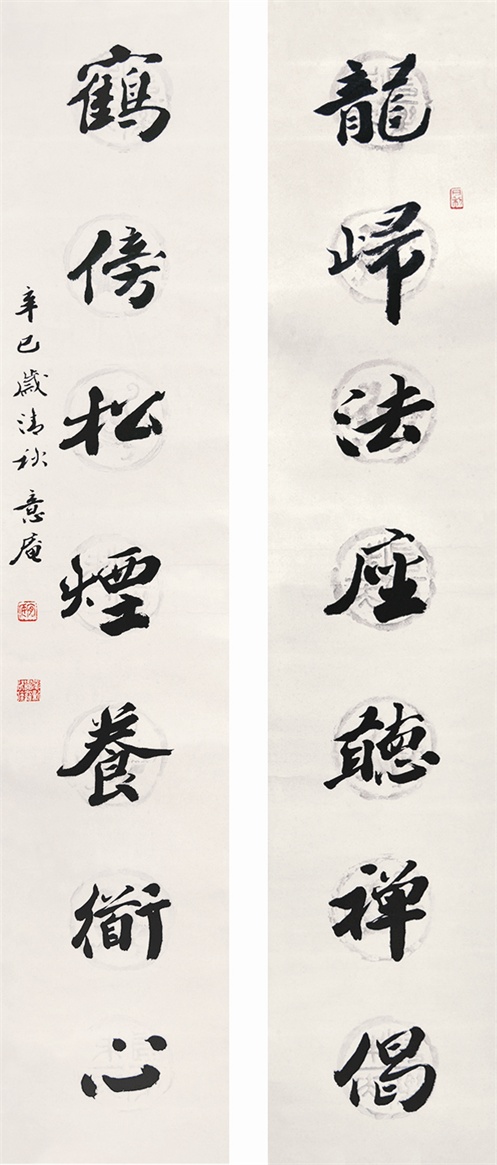 龍歸法座聴禅偈
鶴傍松煙養衜心
辛巳歲清秋 意庵